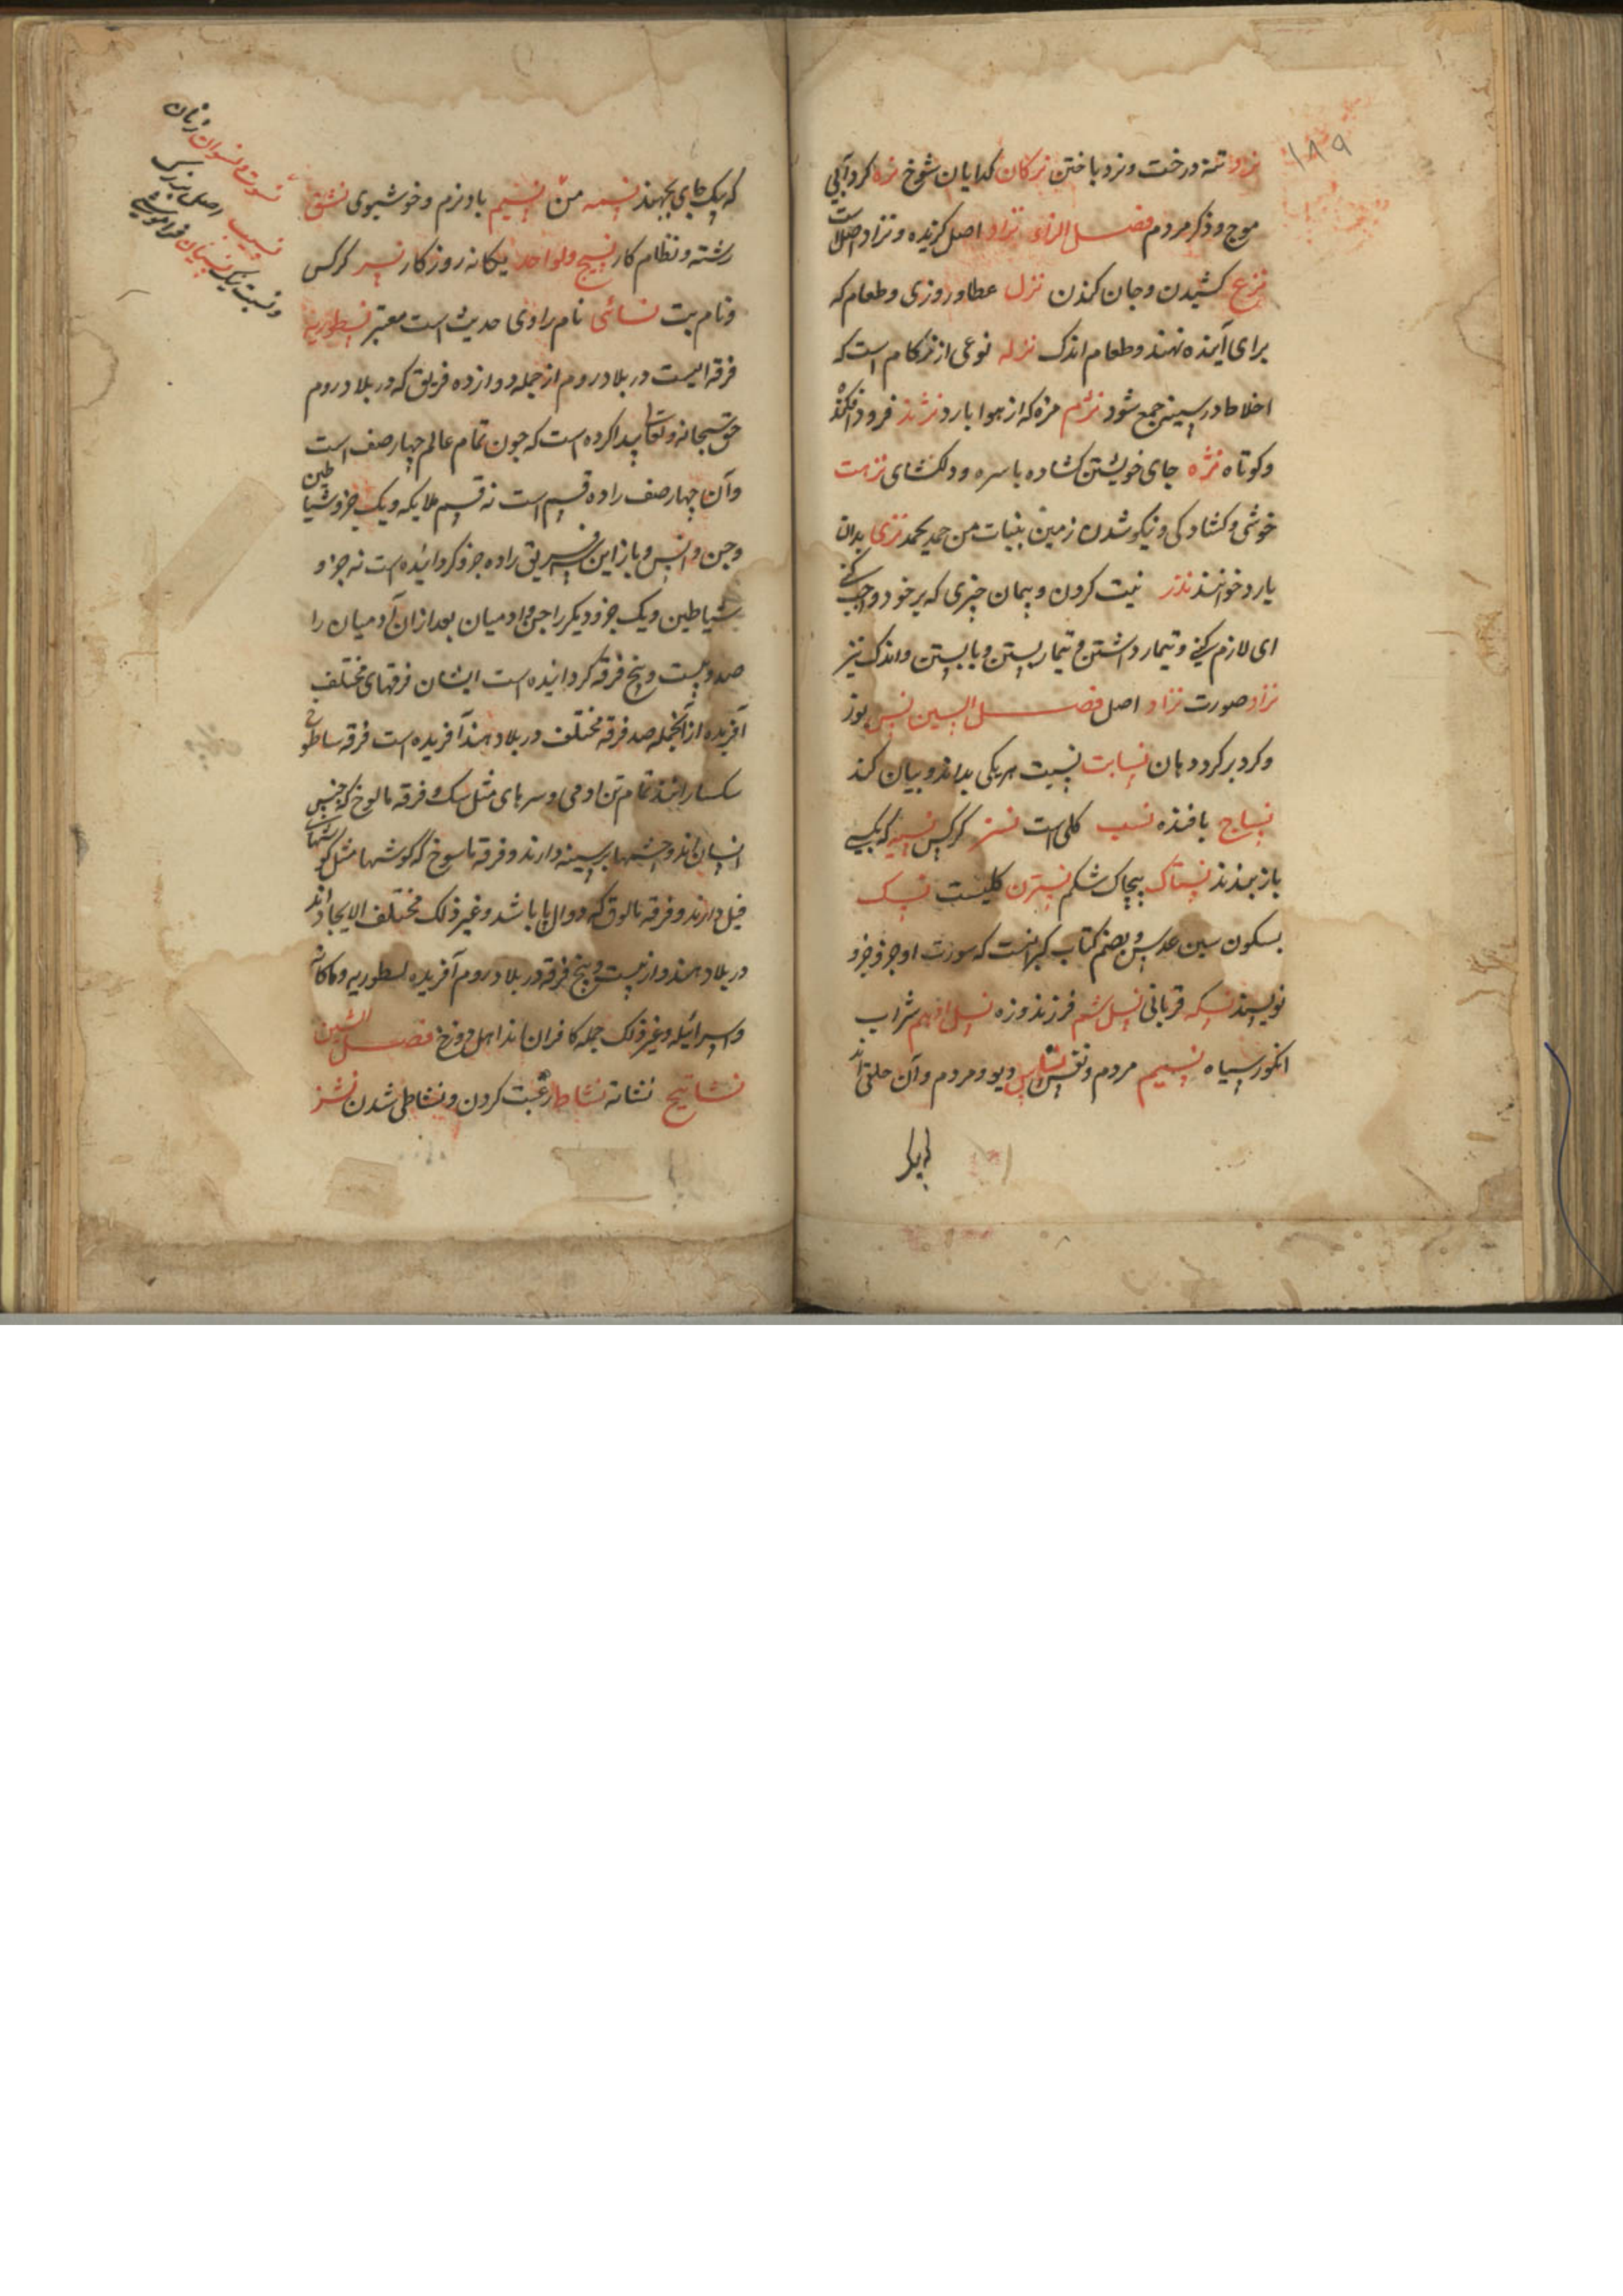 ۱۸۹
نرد تنه درخت و نرد باختن نرکان کدایان شوخ نره کرد آبی
موج و ذکر مردم فصل الزاء نژاد اصل گزیده و نژاد اصل است
نزع کشیدن و جان کندن نزل عطا و روزی و طعام که
برای آینده نهند و طعام اندک نزله نوعی از زکام است که
اخلاط در سینه جمع شود نژم مزه که از هوا بارد نژند فرود افکنده
و کوتاه نژه جای خویشتن کشاده با سره و دلکشای نزهت
خوشی و کشادکی و نیکو شدن زمین بنبات من حمد یحمد نزی بدان
یارد خوانند نذر نیت کردن و پیمان چیزی که بر خود واجب کنی
ای لازم کنی و تیمار داشتن و تیمار بستن و بابستن و اندک نیز
نژاد صورت نژاد اصل فصل السین نس پوز
و کرد بر کرد دهان نسابت نسبت هر یکی بداند و بیان کند
نساج بافنده نسب کلی است نسر کرکس نسیه که یکی
باز بمدند نستاک پیچاک شکم نسترن کلیست نسک
بسکون سین عدس و بضم کتاب کبرانست که سورت او جزو جزو
نویسند نسکه قربانی نسل شم فرزند و زه نسل ادهم شراب
انکور سیاه نسیم مردم و نفس نسناس دیو و مردم و آن خلقی اند
که یک جای بجهند نسمه من نسیم باد نرم و خوشبوی نسق
رشته و نظام کار نسیج ولواحد یکانه روزکار نسر کرکس
و نام بت نسائی نام راوی حدیث است معتبر نسطوریه
فرقه ایست در بلاد روم از جمله دوازده فریق که در بلاد روم
حق سبحانه و تعالی پیدا کرده است که چون تمام عالم چهار صف است
و آن چهار صف را ده قسم است نه قسم ملایکه و یک جزو شیاطین
و جن و انس و باز این فریق را ده جزو کردانیده است نه جزو
شیاطین و یک جزو دیکر را جن و ادمیان بعد ازان آدمیان را
صد و بیست و پنج فرقه کردانیده است ایشان فرقهای مختلف
آفریده از آنجمله صد فرقه مختلف در بلاد هند آفریده است فرقه ساطوخ
سکسارانند تمام تن ادمی و سرهای مثل سک و فرقه مالوخ که جنس
انسان اند و چشمها بر سینه دارند و فرقه ماسوخ که کوشها مثل کوشهای
فیل دارند و فرقه مالوق که دوال پا باشد و غیر ذلک مختلف الایجاد اند
در بلاد هند و از بیست و پنج فرقه در بلاد روم آفریده نسطوریه و ملکائیه
و اسرائیله و غیر ذلک جمله کافران اند اهل دوزخ فصل الشین
نشابیج نشانه نشاط رغبت کردن و نشاطی شدن نشز
نسوة و نسوان زنان
نسیب اصل بزرک
و نسبت نیک نسیان فراموشی